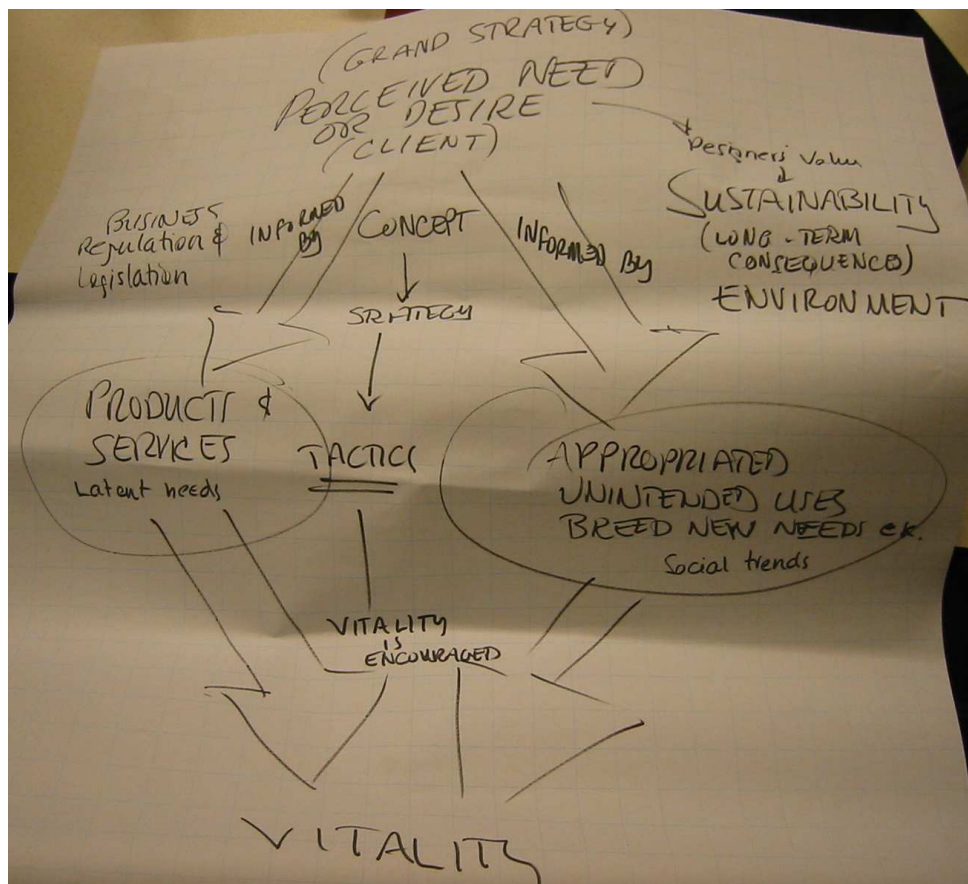 (GRAND STRATEGY)
PERCEIVED NEED
OR DESIRE
(CLIENT)
Designers Value
SUSTAINABILITY
(LONG-TERM
CONSEQUENCE)
ENVIRONMENT
BUSINESS
Regulation &
Legislation
INFORMED
BY
CONCEPT
INFORMED BY
STRATEGY
PRODUCTS &
SERVICES
Latent needs
TACTICS
APPROPRIATED
UNINTENDED USES
BREED NEW NEEDS
Social trends
VITALITY
IS
ENCOURAGED
VITALITY